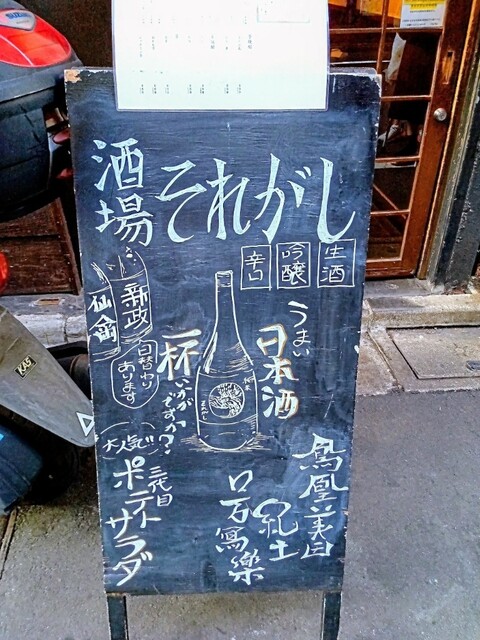 酒場 それがし
生酒
吟醸
辛口
うまい
日本酒
一杯
いかが
ですか?
新政
仙禽
日替わり
あります
大人気!!
三代目
ポテト
サラダ
鳳凰美田
紀土
写樂
KAS